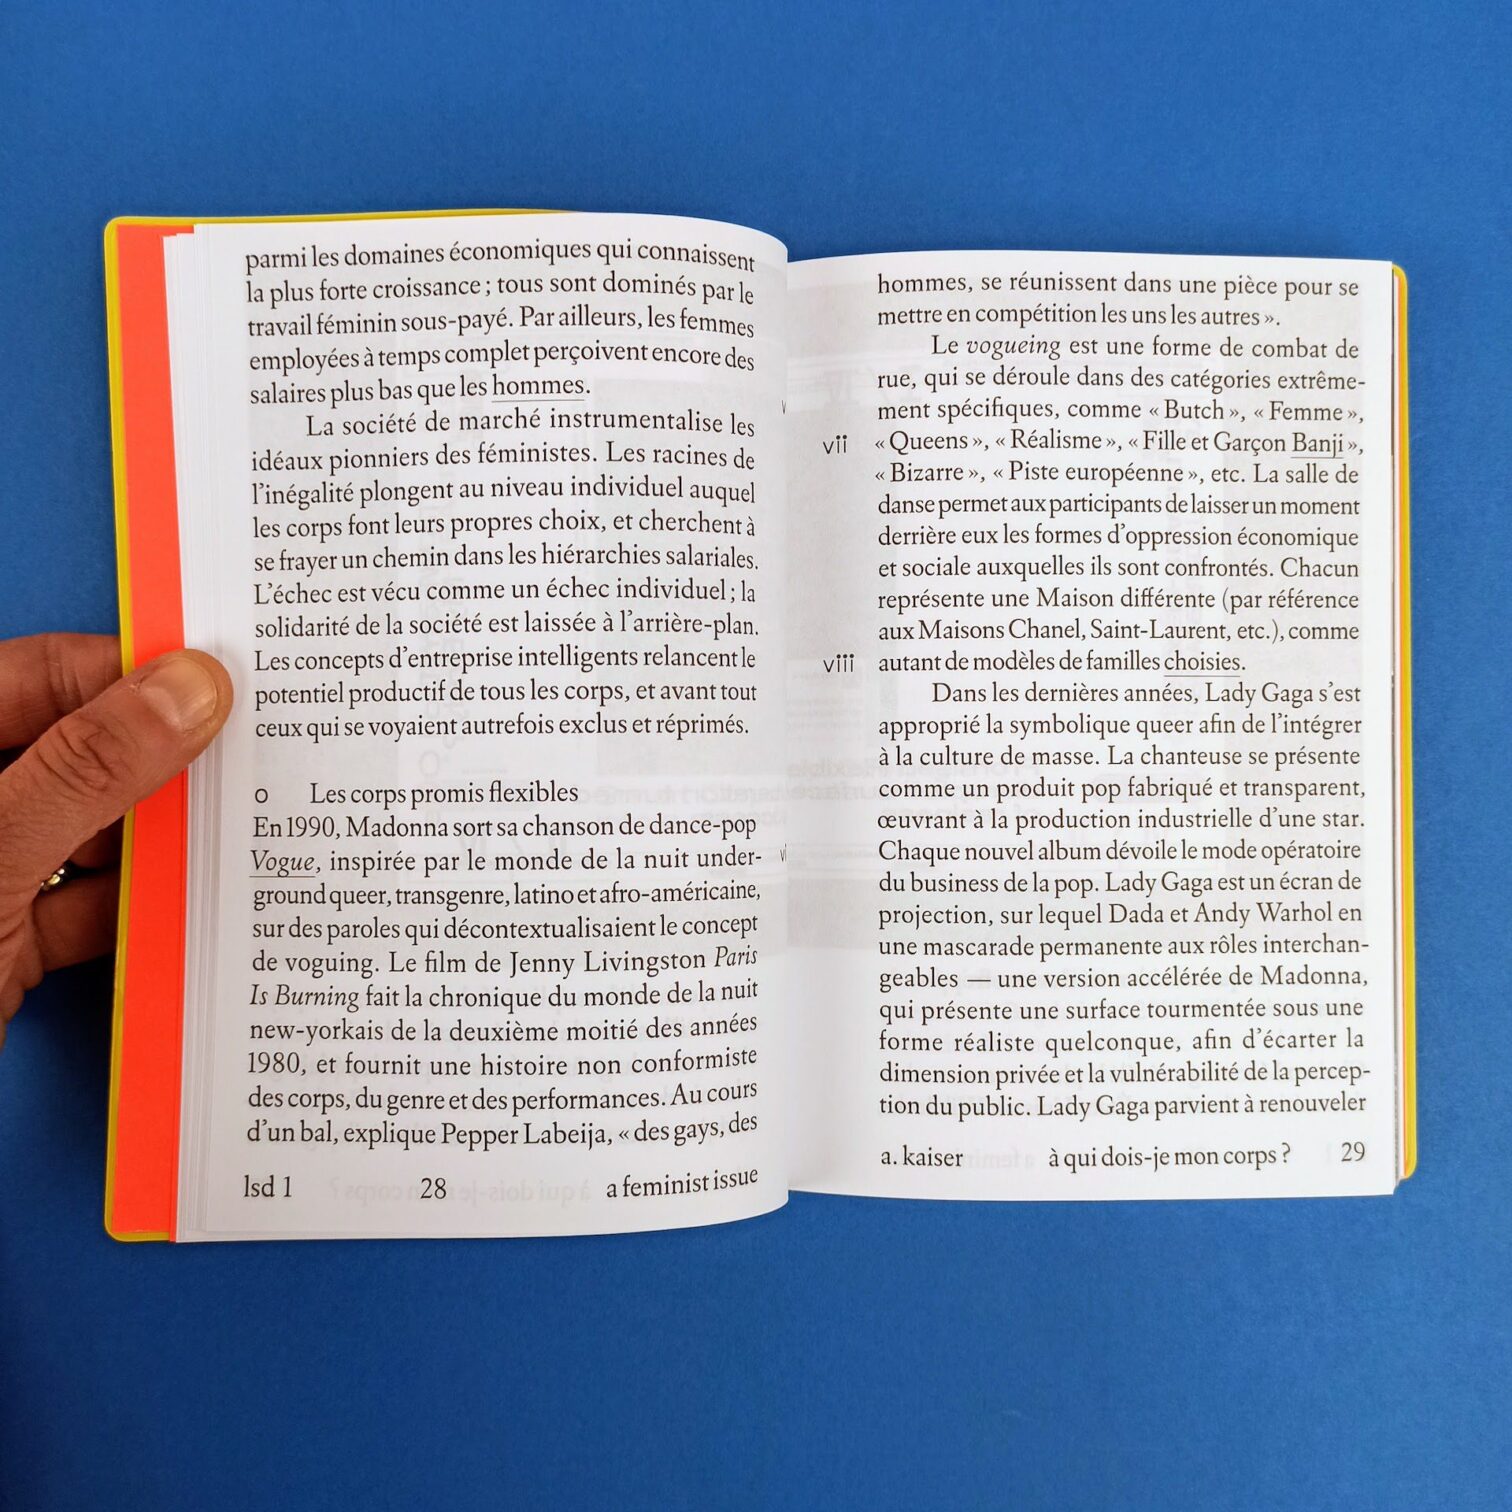 parmi les domaines économiques qui connaissent
la plus forte croissance ; tous sont dominés par le
travail féminin sous-payé. Par ailleurs, les femmes
employées à temps complet perçoivent encore des
salaires plus bas que les hommes.
La société de marché instrumentalise les
idéaux pionniers des féministes. Les racines de
l’inégalité plongent au niveau individuel auquel
les corps font leurs propres choix, et cherchent à
se frayer un chemin dans les hiérarchies salariales.
L’échec est vécu comme un échec individuel ; la
solidarité de la société est laissée à l’arrière-plan.
Les concepts d’entreprise intelligents relancent le
potentiel productif de tous les corps, et avant tout
ceux qui se voyaient autrefois exclus et réprimés.
o Les corps promis flexibles
En 1990, Madonna sort sa chanson de dance-pop
Vogue, inspirée par le monde de la nuit under-
ground queer, transgenre, latino et afro-américaine,
sur des paroles qui décontextualisaient le concept
de voguing. Le film de Jenny Livingston Paris
Is Burning fait la chronique du monde de la nuit
new-yorkais de la deuxième moitié des années
1980, et fournit une histoire non conformiste
des corps, du genre et des performances. Au cours
d’un bal, explique Pepper Labeija, « des gays, des
lsd 1 28 a feminist issue
hommes, se réunissent dans une pièce pour se
mettre en compétition les uns les autres ».
Le vogueing est une forme de combat de
rue, qui se déroule dans des catégories extrême-
ment spécifiques, comme « Butch », « Femme »,
vii « Queens », « Réalisme », « Fille et Garçon Banji »,
« Bizarre », « Piste européenne », etc. La salle de
danse permet aux participants de laisser un moment
derrière eux les formes d’oppression économique
et sociale auxquelles ils sont confrontés. Chacun
représente une Maison différente (par référence
aux Maisons Chanel, Saint-Laurent, etc.), comme
viii autant de modèles de familles choisies.
Dans les dernières années, Lady Gaga s’est
approprié la symbolique queer afin de l’intégrer
à la culture de masse. La chanteuse se présente
comme un produit pop fabriqué et transparent,
œuvrant à la production industrielle d’une star.
Chaque nouvel album dévoile le mode opératoire
du business de la pop. Lady Gaga est un écran de
projection, sur lequel Dada et Andy Warhol en
une mascarade permanente aux rôles interchan-
geables — une version accélérée de Madonna,
qui présente une surface tourmentée sous une
forme réaliste quelconque, afin d’écarter la
dimension privée et la vulnérabilité de la percep-
tion du public. Lady Gaga parvient à renouveler
a. kaiser à qui dois-je mon corps ? 29